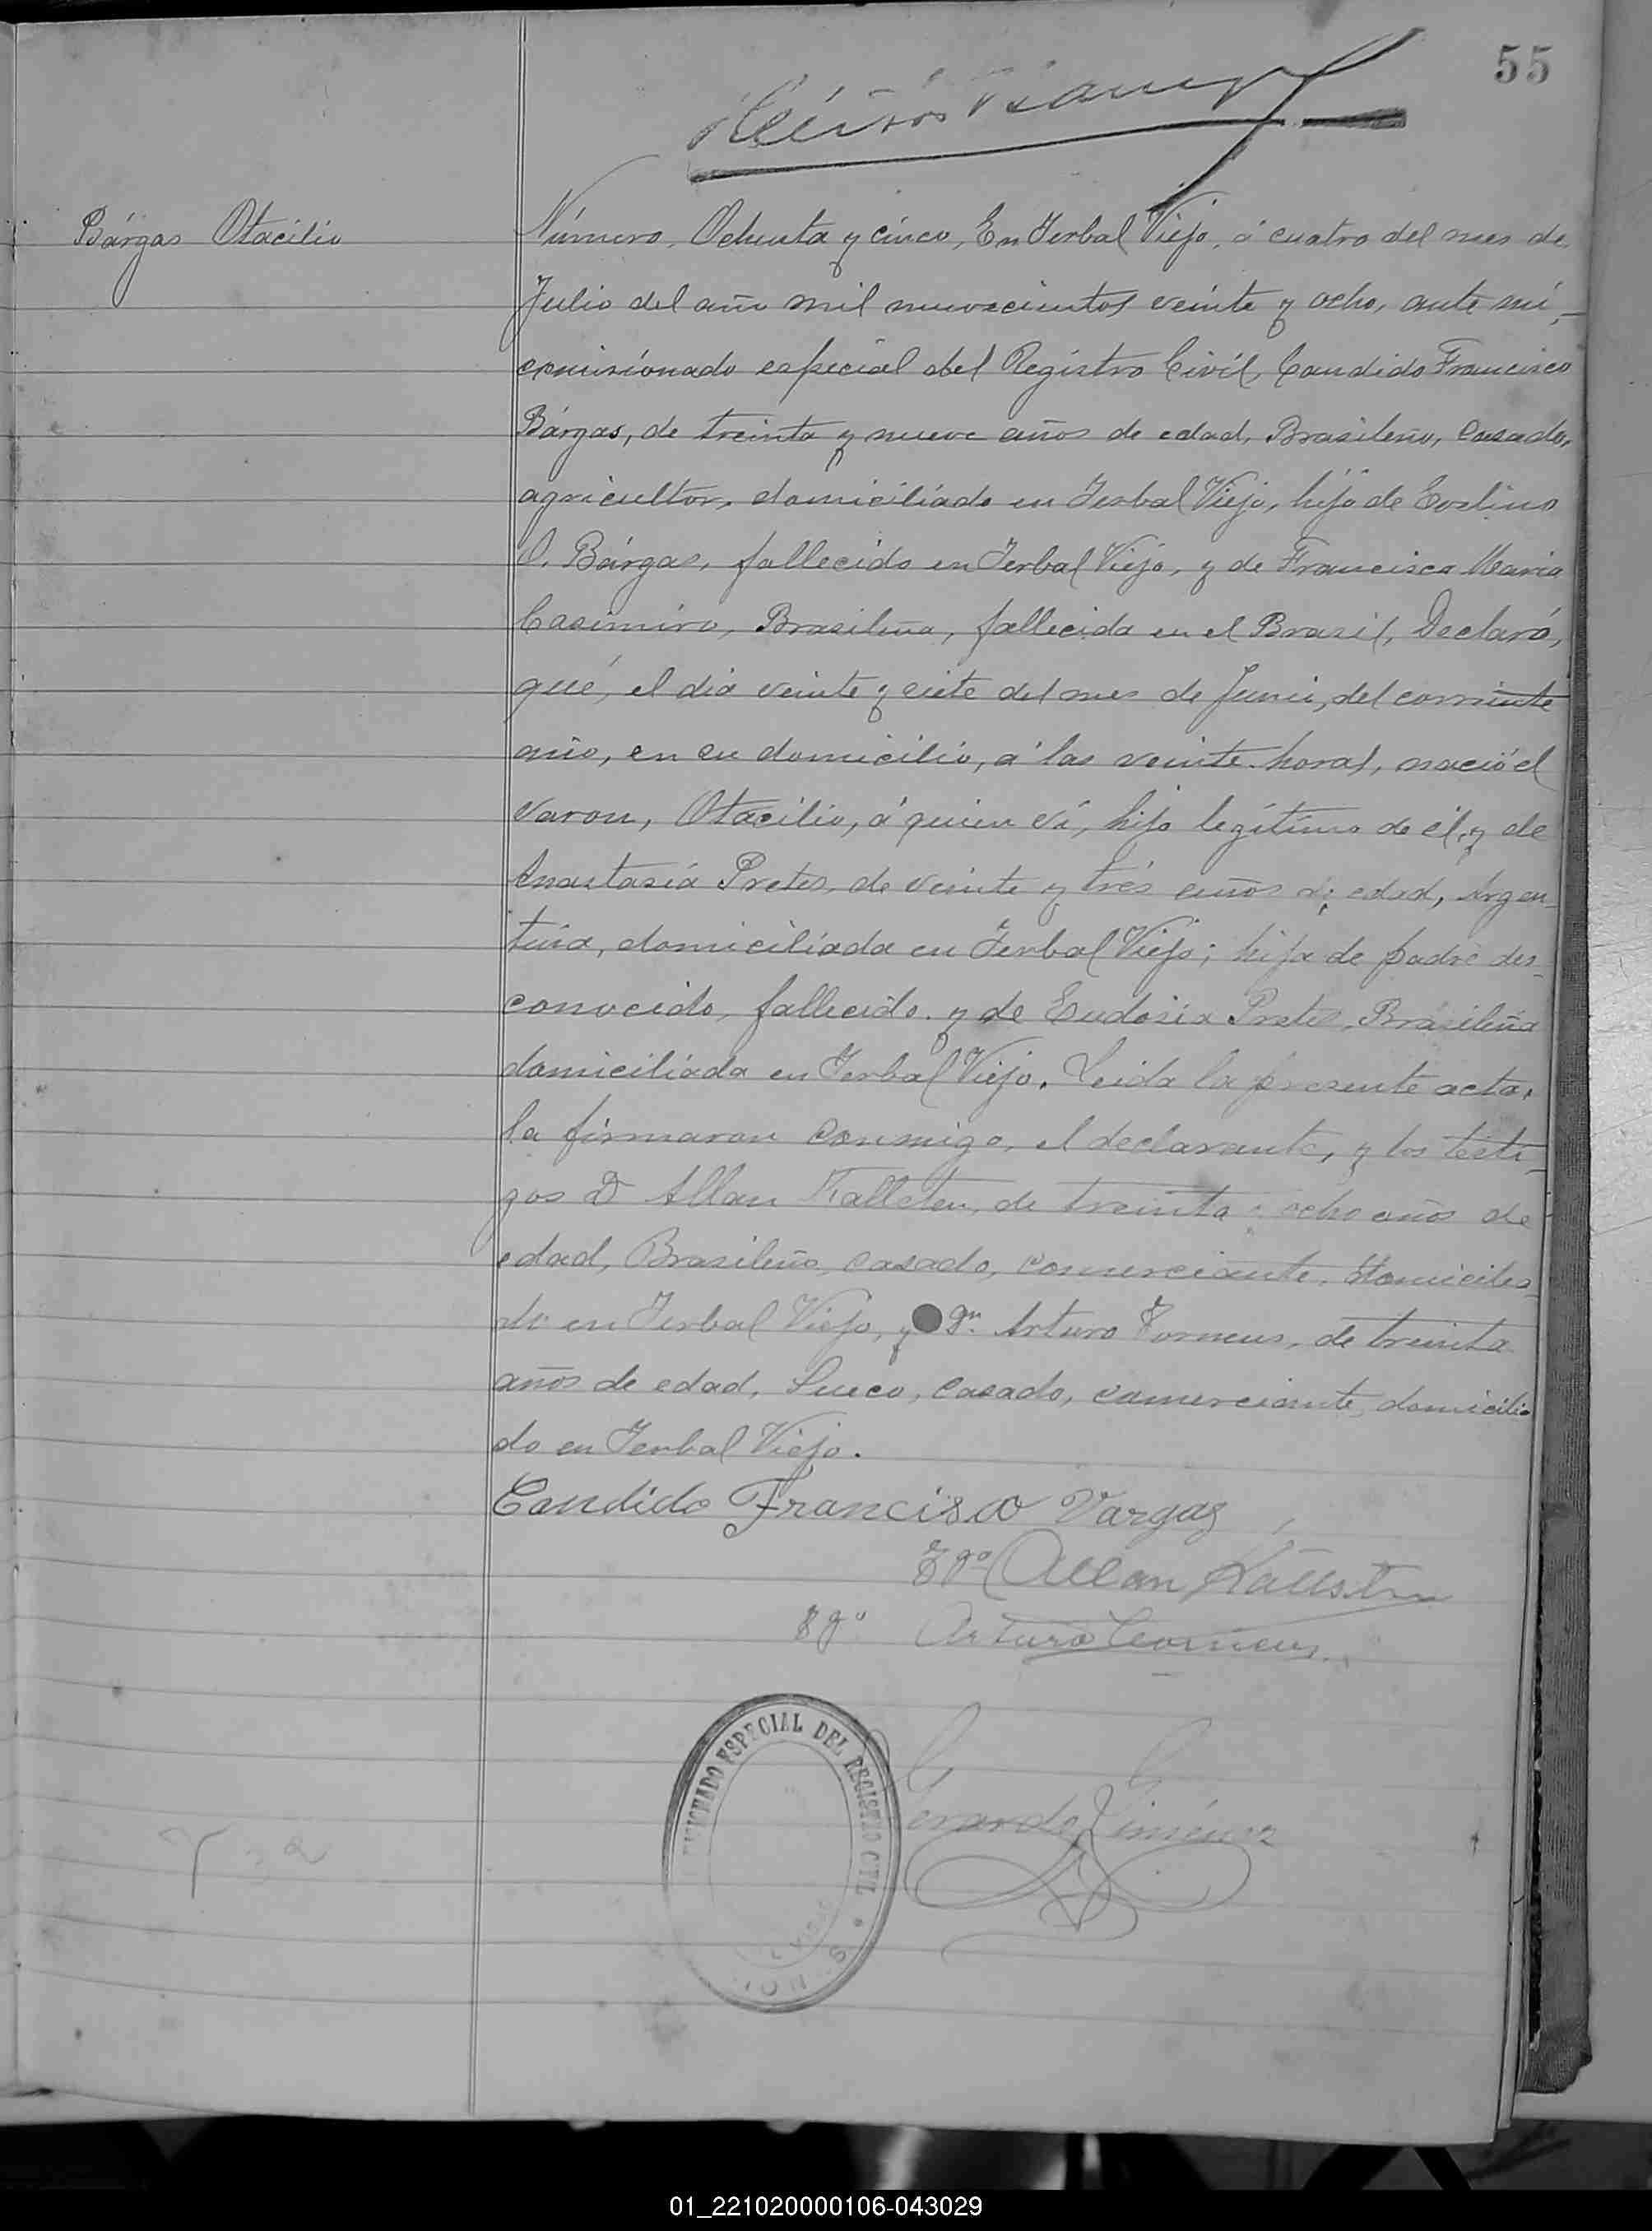 55
Bárgas Otacilio
Número, Ochenta y cinco, En Yerbal Viejo, á cuatro del mes de
Julio del año mil nuevecientos veinte y ocho, ante mí,
comisionado especial del Registro Civíl, Candido Francisco
Bárgas, de treinta y nueve años de edad, Brasileño, Casado,
agricultor, domiciliado en Yerbal Viejo, hijo de Evelino
O. Bárgas, fallecido en Yerbal Viejo, y de Francisca Maria
Casimiro, Brasileña, fallecida en el Brasil, Declaró,
qué, el dia veinte y siete del mes de Junio, del corriente
año, en su domicilio, á las veinte horas, nació el
varon, Otacilio, á quien ví, hijo legítimo de él, y de
Anastasía Pretes, de veinte y trés años de edad, Argen-
tina, domiciliada en Yerbal Viejo; hija de padre des-
conocido, fallecido. y de Eudosia Pretes, Brasileña
domiciliada en Yerbal Viejo. Leida la presente acta,
la firmaron conmigo, el declarante, y los testi-
gos D Allan de treinta y ocho años de
edad, Brasileño, casado, comerciante, domicilia-
do en Yerbal Viejo, y Arturo Torneus, de treinta
años de edad, Sueco, casado, comerciante, domicilia
do en Yerbal Viejo.
Candido Francisco Vargas
Tgo Allan Källsten
Tgo Arturo Torneus
ESPECIAL DEL REGISTRO CIVIL
Gerardo Giménez
01_221020000106-043029